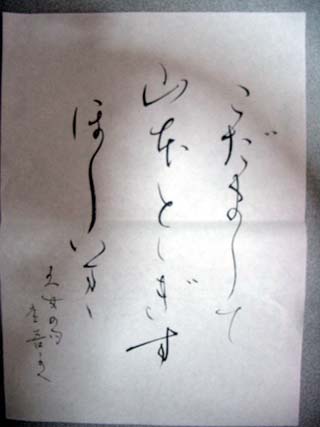 こだまして
山本とゝぎす
ほしいまゝ
久女の句